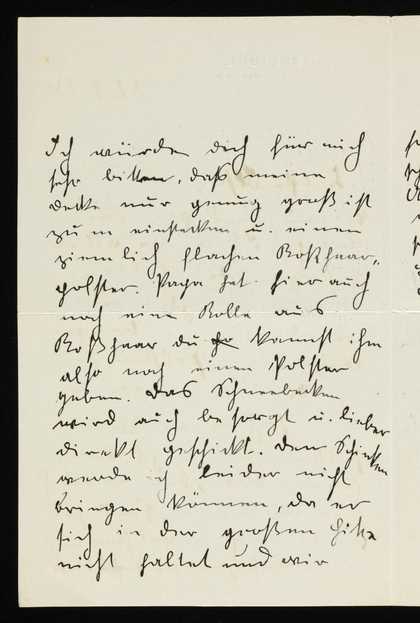 Ich würde dich für mich
sehr bitten, daß meine
Decke nur genug groß ist
zum einstecken u. einen
ziemlich flachen Roßhaar-
polster. Papa hat hier auch
noch eine Rolle aus
Roßhaar du kannst ihm
also noch einen Polster
geben. Das Schneebecken
wird auch besorgt u. lieber
direkt geschickt. Den Schinken
werde ich leider nicht
bringen können, da er
sich in der großen Hitze
nicht haltet und wir